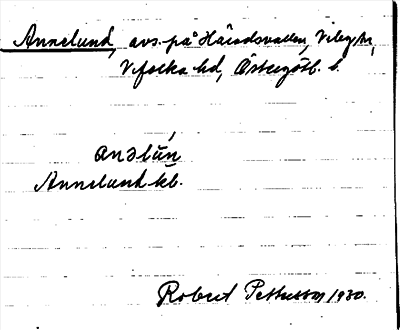 Annelund, avs. på Häradsvallen, Viby sn,
Vifolka hd, Östergötl. l.
anəlún
Annelund kb.
Robert Pettersson 1930.